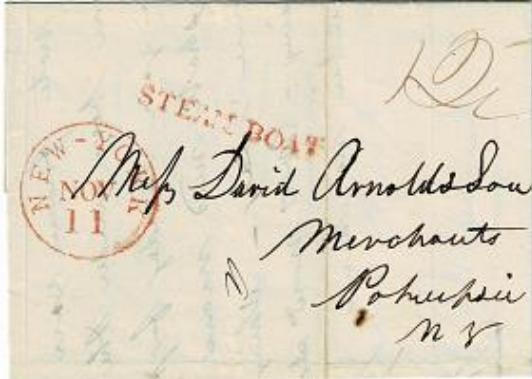 STEAM BOAT
NEW-YORK
NOV
11
Mess David Arnold & Son
Merchants
Pokeepsie
N Y